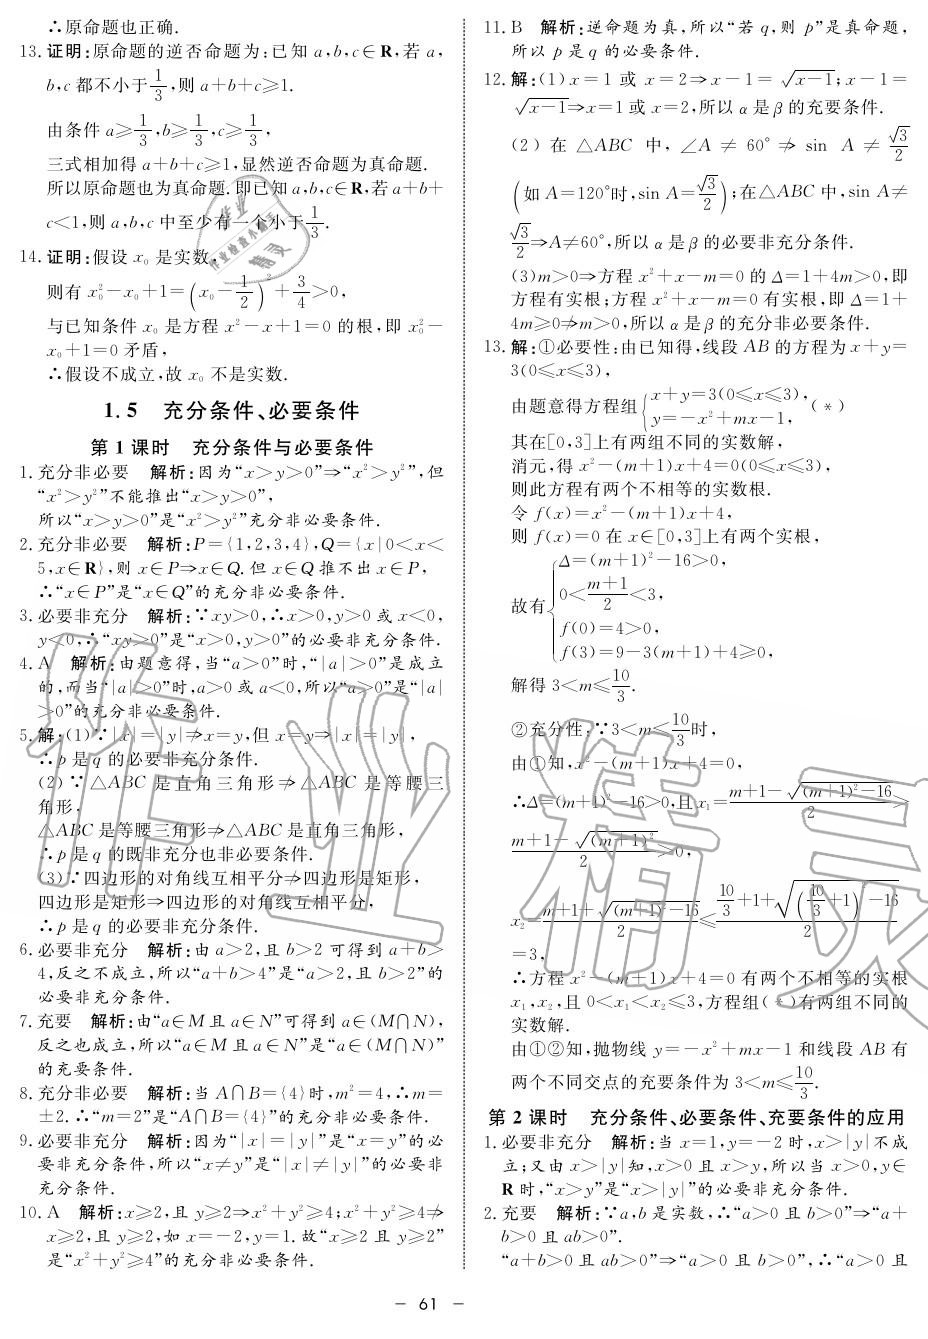 ∴原命题也正确.
13. 证明:原命题的逆否命题为:已知 a,b,c∈R,若 a,
b,c 都不小于1/3,则 a+b+c≥1.
由条件 a≥1/3,b≥1/3,c≥1/3,
三式相加得 a+b+c≥1,显然逆否命题为真命题.
所以原命题也为真命题.即已知 a,b,c∈R,若 a+b+
c<1,则 a,b,c 中至少有一个小于1/3.
14. 证明:假设 x₀ 是实数,
则有 x₀²-x₀+1=(x₀-1/2)²+3/4>0,
与已知条件 x₀ 是方程 x²-x+1=0 的根,即 x₀²-
x₀+1=0 矛盾,
∴假设不成立,故 x₀ 不是实数.
1.5 充分条件、必要条件
第 1 课时 充分条件与必要条件
1. 充分非必要 解析:因为“x>y>0”⇒“x²>y²”,但
“x²>y²”不能推出“x>y>0”,
所以“x>y>0”是“x²>y²”充分非必要条件.
2. 充分非必要 解析:P={1,2,3,4},Q={x|0<x<
5,x∈R},则 x∈P⇒x∈Q.但 x∈Q 推不出 x∈P,
∴“x∈P”是“x∈Q”的充分非必要条件.
3. 必要非充分 解析:∵xy>0,∴x>0,y>0 或 x<0,
y<0,∴“xy>0”是“x>0,y>0”的必要非充分条件.
4. A 解析:由题意得,当“a>0”时,“|a|>0”是成立
的,而当“|a|>0”时,a>0 或 a<0,所以“a>0”是“|a|
>0”的充分非必要条件.
5. 解:(1)∵|x|=|y|⇏x=y,但 x=y⇒|x|=|y|,
∴p 是 q 的必要非充分条件.
(2)∵△ABC 是直角三角形⇏△ABC 是等腰三
角形,
△ABC 是等腰三角形⇏△ABC 是直角三角形,
∴p 是 q 的既非充分也非必要条件.
(3)∵四边形的对角线互相平分⇏四边形是矩形,
四边形是矩形⇒四边形的对角线互相平分,
∴p 是 q 的必要非充分条件.
6. 必要非充分 解析:由 a>2,且 b>2 可得到 a+b>
4,反之不成立,所以“a+b>4”是“a>2,且 b>2”的
必要非充分条件.
7. 充要 解析:由“a∈M 且 a∈N”可得到 a∈(M⋂N),
反之也成立,所以“a∈M 且 a∈N”是“a∈(M⋂N)”
的充要条件.
8. 充分非必要 解析:当 A⋂B={4}时,m²=4,∴m=
±2.∴“m=2”是“A⋂B={4}”的充分非必要条件.
9. 必要非充分 解析:因为“|x|=|y|”是“x=y”的必
要非充分条件,所以“x≠y”是“|x|≠|y|”的必要非
充分条件.
10. A 解析:x≥2,且 y≥2⇒x²+y²≥4;x²+y²≥4⇏
x≥2,且 y≥2,如 x=-2,y=1.故“x≥2 且 y≥2”
是“x²+y²≥4”的充分非必要条件.
11. B 解析:逆命题为真,所以“若 q,则 p”是真命题,
所以 p 是 q 的必要条件.
12. 解:(1)x=1 或 x=2⇒x-1=√(x-1);x-1=
√(x-1)⇒x=1 或 x=2,所以 α 是 β 的充要条件.
(2) 在 △ABC 中, ∠A ≠ 60° ⇏ sin A ≠ √3/2
(如 A=120°时,sin A=√3/2);在△ABC 中,sin A≠
√3/2⇒A≠60°,所以 α 是 β 的必要非充分条件.
(3)m>0⇒方程 x²+x-m=0 的 Δ=1+4m>0,即
方程有实根;方程 x²+x-m=0 有实根,即 Δ=1+
4m≥0⇏m>0,所以 α 是 β 的充分非必要条件.
13. 解:①必要性:由已知得,线段 AB 的方程为 x+y=
3(0≤x≤3),
由题意得方程组{x+y=3(0≤x≤3), y=-x²+mx-1,(*)
其在[0,3]上有两组不同的实数解,
消元,得 x²-(m+1)x+4=0(0≤x≤3),
则此方程有两个不相等的实数根.
令 f(x)=x²-(m+1)x+4,
则 f(x)=0 在 x∈[0,3]上有两个实根,
故有{Δ=(m+1)²-16>0,
0<(m+1)/2<3,
f(0)=4>0,
f(3)=9-3(m+1)+4≥0,
解得 3<m≤10/3.
②充分性:∵3<m≤10/3时,
由①知,x²-(m+1)x+4=0,
∴Δ=(m+1)²-16>0,且 x₁=(m+1-√((m+1)²-16))/2>
(m+1-√((m+1)²))/2>0,
x₂=(m+1+√((m+1)²-16))/2≤(10/3+1+√((10/3+1)²-16))/2
=3,
∴方程 x²-(m+1)x+4=0 有两个不相等的实根
x₁,x₂,且 0<x₁<x₂≤3,方程组(*)有两组不同的
实数解.
由①②知,抛物线 y=-x²+mx-1 和线段 AB 有
两个不同交点的充要条件为 3<m≤10/3.
第 2 课时 充分条件、必要条件、充要条件的应用
1. 必要非充分 解析:当 x=1,y=-2 时,x>|y|不成
立;又由 x>|y|知,x>0 且 x>y,所以当 x>0,y∈
R 时,“x>y”是“x>|y|”的必要非充分条件.
2. 充要 解析:∵a,b 是实数,∴“a>0 且 b>0”⇒“a+
b>0 且 ab>0”.
“a+b>0 且 ab>0”⇒“a>0 且 b>0”,∴“a>0 且
- 61 -
作业精灵